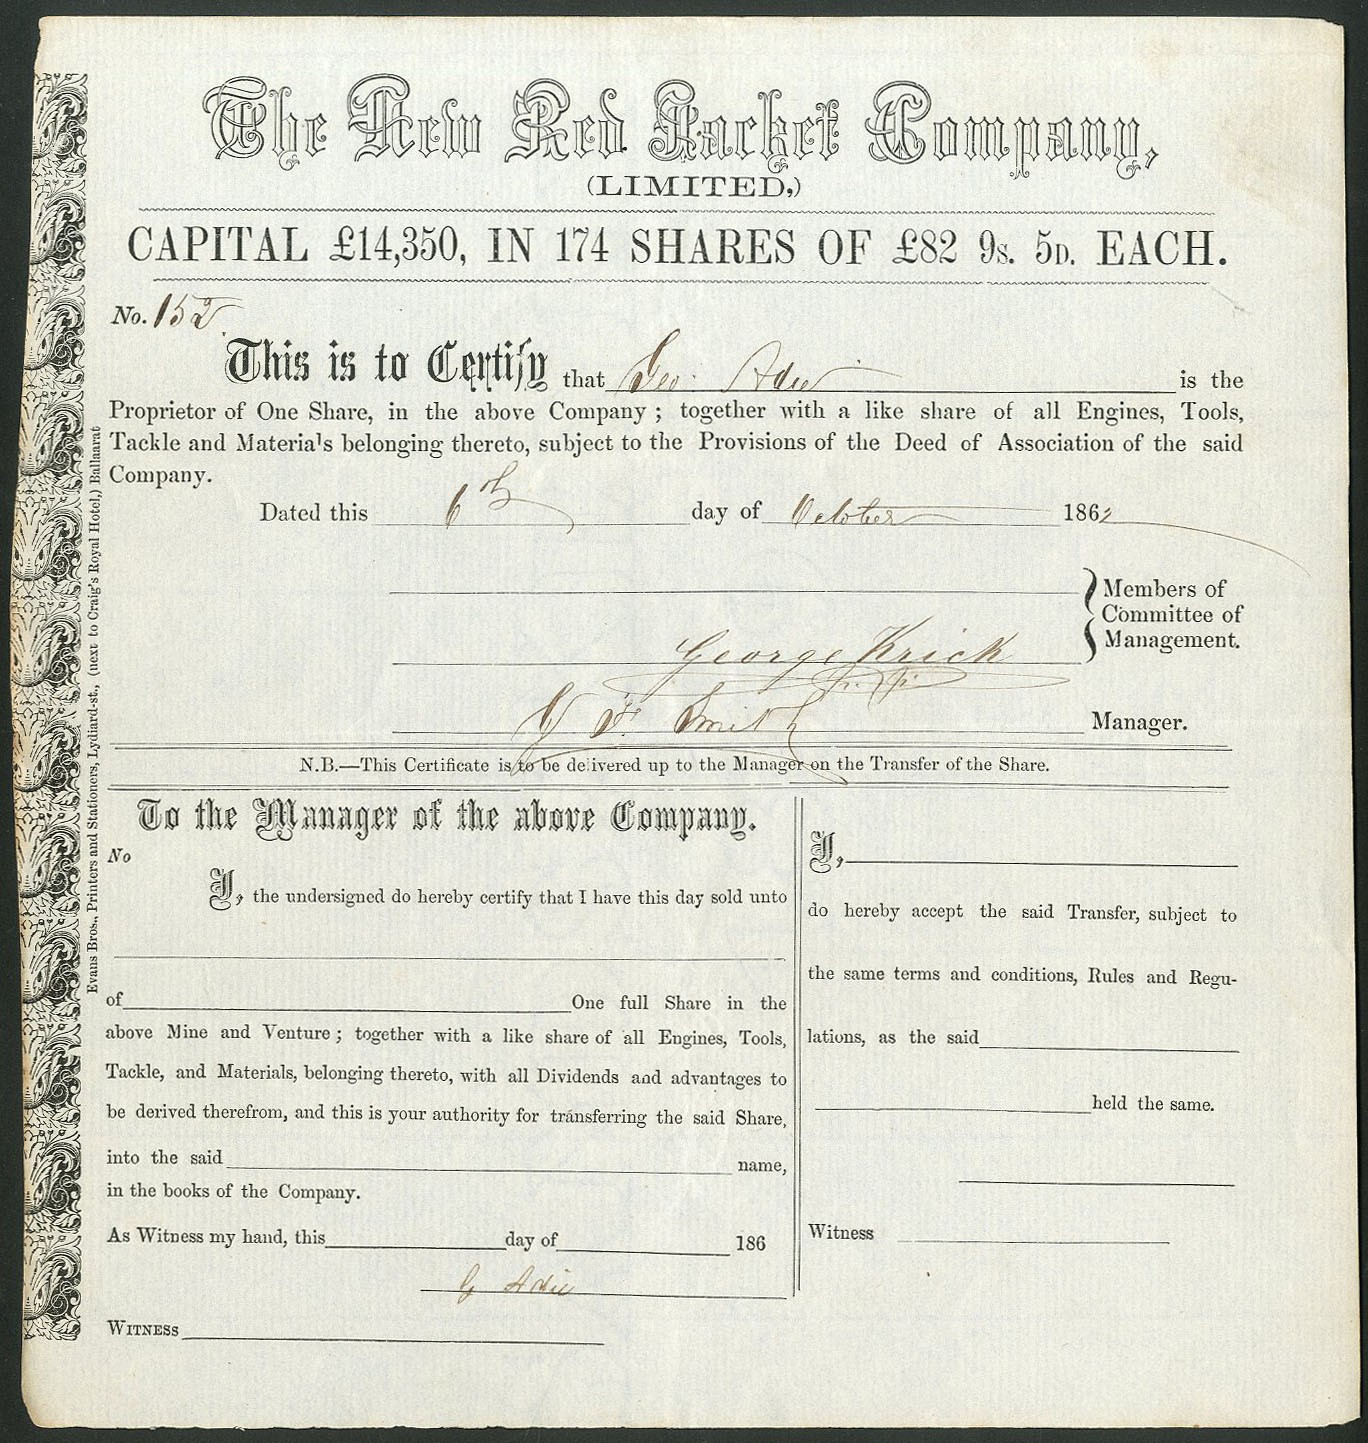 The New Red Jacket Company,
(LIMITED,)
CAPITAL £14,350, IN 174 SHARES OF £82 9s. 5D. EACH.
No. 152
This is to Certify that Geo. Adie is the
Proprietor of One Share, in the above Company ; together with a like share of all Engines, Tools,
Tackle and Materials belonging thereto, subject to the Provisions of the Deed of Association of the said
Company.
Dated this 6th day of October 1862
Members of
Committee of
Management.
George Krick
G F. Smith Manager.
N.B.—This Certificate is to be delivered up to the Manager on the Transfer of the Share.
To the Manager of the above Company.
No
I, the undersigned do hereby certify that I have this day sold unto
of One full Share in the
above Mine and Venture ; together with a like share of all Engines, Tools,
Tackle, and Materials, belonging thereto, with all Dividends and advantages to
be derived therefrom, and this is your authority for transferring the said Share,
into the said name,
in the books of the Company.
As Witness my hand, this day of 186
G Adie
WITNESS
I,
do hereby accept the said Transfer, subject to
the same terms and conditions, Rules and Regu-
lations, as the said
held the same.
Witness
Evans Bros., Printers and Stationers, Lydiard-st., (next to Craig's Royal Hotel,) Ballaarat